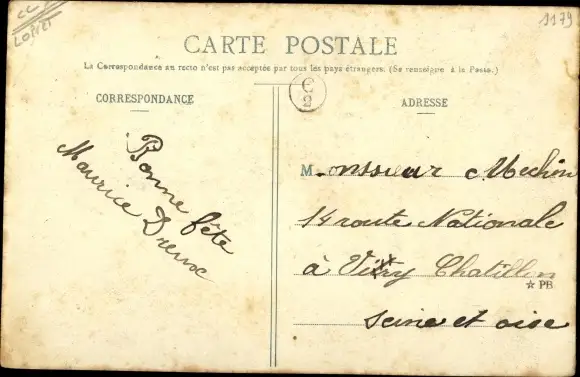 CC
LOIRET
1179
CARTE POSTALE
La Correspondance au recto n'est pas acceptée par tous les pays étrangers. (Se renseigner à la Poste.)
C
2
CORRESPONDANCE
Bonne fête
Maurice Dreux
ADRESSE
Monsieur Mechin
14 route Nationale
à Vitry Chatillon
★ PB
Seine et oise